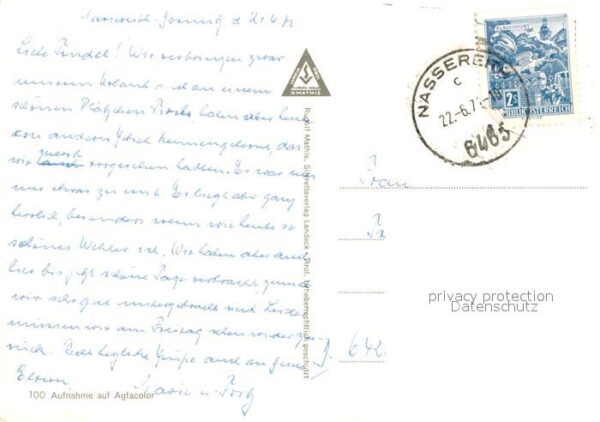 Nassereith-Dormitz d 22.6.71
Liebe Trudel! Wir verbringen zwar
unseren Urlaub schon an einem
schönen Plätzchen Tirols, haben aber heute
ein anderes kennengelernt, das
wir zuerst vorgesehen hatten. Es war
uns etwas zu weit. Es liegt aber ganz
herrlich, besonders wenn wie heute so
schönes Wetter ist. Wir haben aber auch
hier bis jetzt schöne Tage verbracht, sind
wir sehr gut untergebracht und leider
müssen wir am Freitag schon wieder zu-
rück. Recht herzliche Grüße auch an
Eltern, Maria u.
100 Aufnahme auf Agfacolor
R. MATHIS
Rudolf Mathis, Silvrettaverlag Landeck - Tirol. Urheberrechtlich geschützt
NASSEREITH
c
22.-6.71
6465
2S
REPUBLIK ÖSTERREICH
Frau
642
privacy protection
Datenschutz